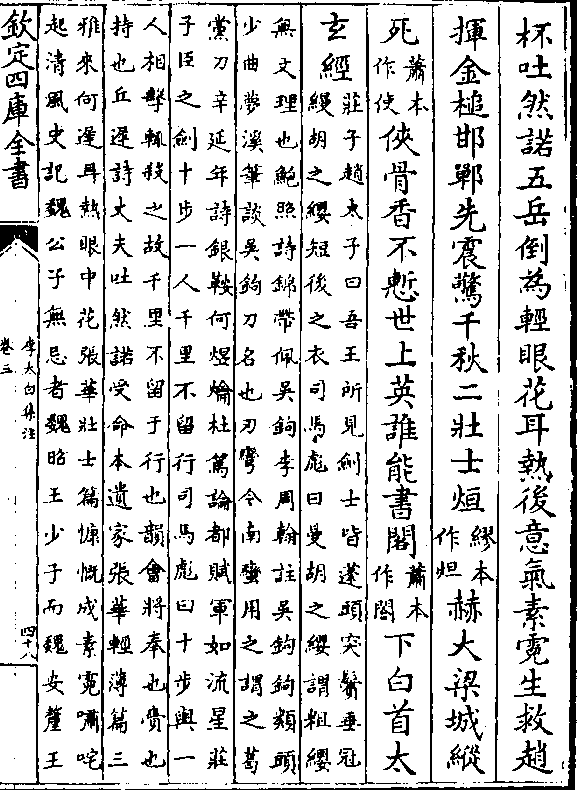 杯吐然諾五岳倒為輕眼花耳熱後意氣素霓生救趙
揮金槌邯鄲先震驚千秋二壯士烜繆本作烜赫大梁城縱
死蕭本作使俠骨香不慙世上英誰能書閣蕭本作閤下白首太
玄經莊子趙太子曰吾王所見劍士皆蓬頭突鬢垂冠
縵胡之纓短後之衣司馬彪曰曼胡之纓謂粗纓
無文理也鮑照詩錦帶佩吳鉤李周翰註吳鉤鉤類頭
少曲夢溪筆談吳鉤刀名也刃彎今南蠻用之謂之葛
黨刀辛延年詩銀鞍何煜爚杜篤論都賦軍如流星莊
子臣之劍十步一人千里不留行司馬彪曰十步與一
人相擊輒殺之故千里不留于行也韻會將奉也賫也
持也丘遲詩丈夫吐然諾受命本遺家張華輕薄篇三
雅來何遲耳熱眼中花張華壯士篇慷慨成素霓嘯咤
起清風史記魏公子無忌者魏昭王少子而魏安釐王
欽定四庫全書
李太白集注
卷三
四十八